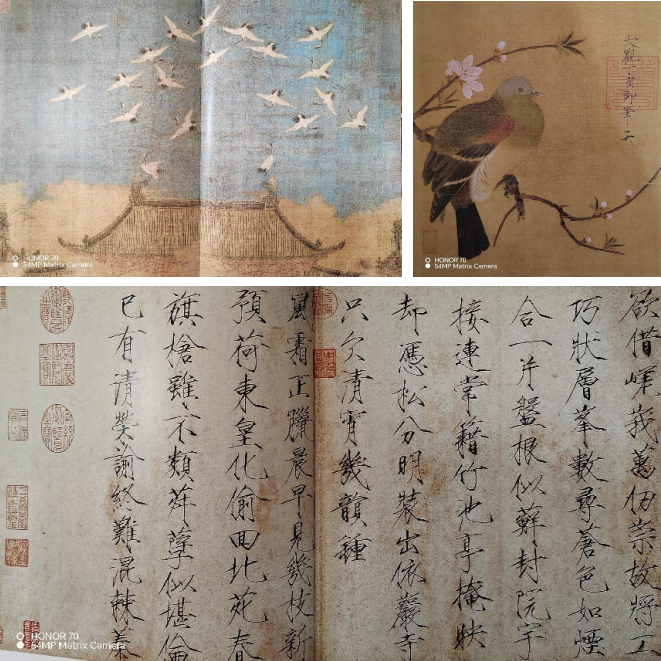 HONOR 70
54MP Matrix Camera
大觀丁亥御筆
HONOR 70
54MP Matrix Camera
欲借嵯峨萬仞崇故將工
巧狀層峯數尋蒼色如煙
合一片盤根似蘚封院宇
接連常籍竹池亭掩映
却憑松分明裝出依巖寺
只欠清宵幾韻鍾
風霜正臘晨早見幾枝新
預荷東皇化偷回北苑春
旗槍雖不類荈孽似堪倫
已有清榮諭終難混棘蓁
HONOR 70
54MP Matrix Camera